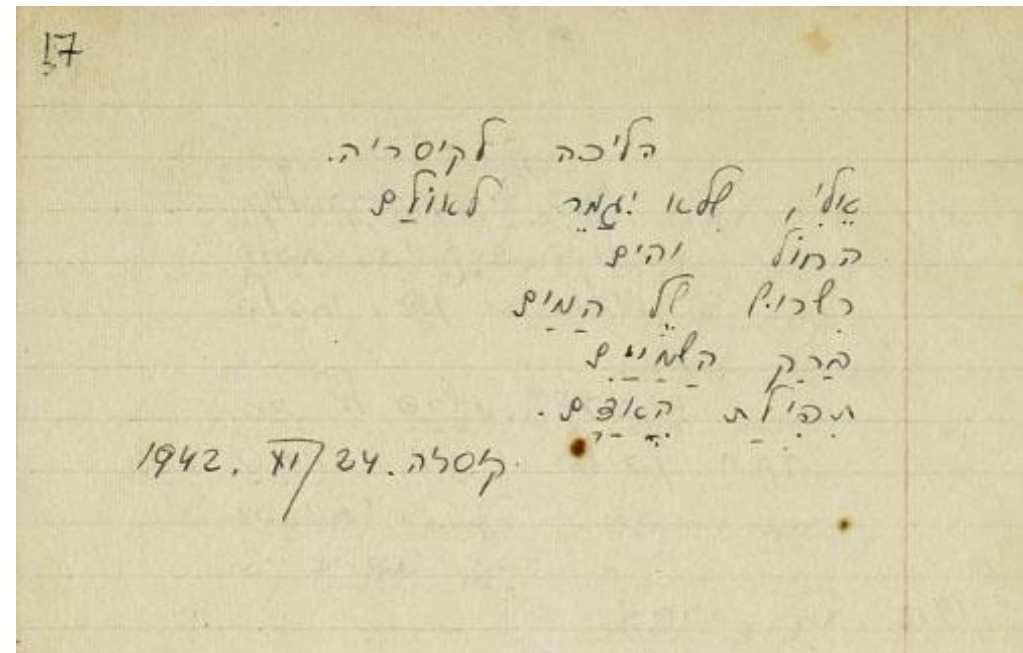 17
הליכה לקיסריה.
אֵלִי, שֶלא יִגָמֵר לאוֹלָם
החוֹל והים
רִשרוּש שֶל הַמַיִם
בָרָק הַשָמַיִם
תְפִילַת הָאָדָם.
קיסרה. 24/XI 1942.